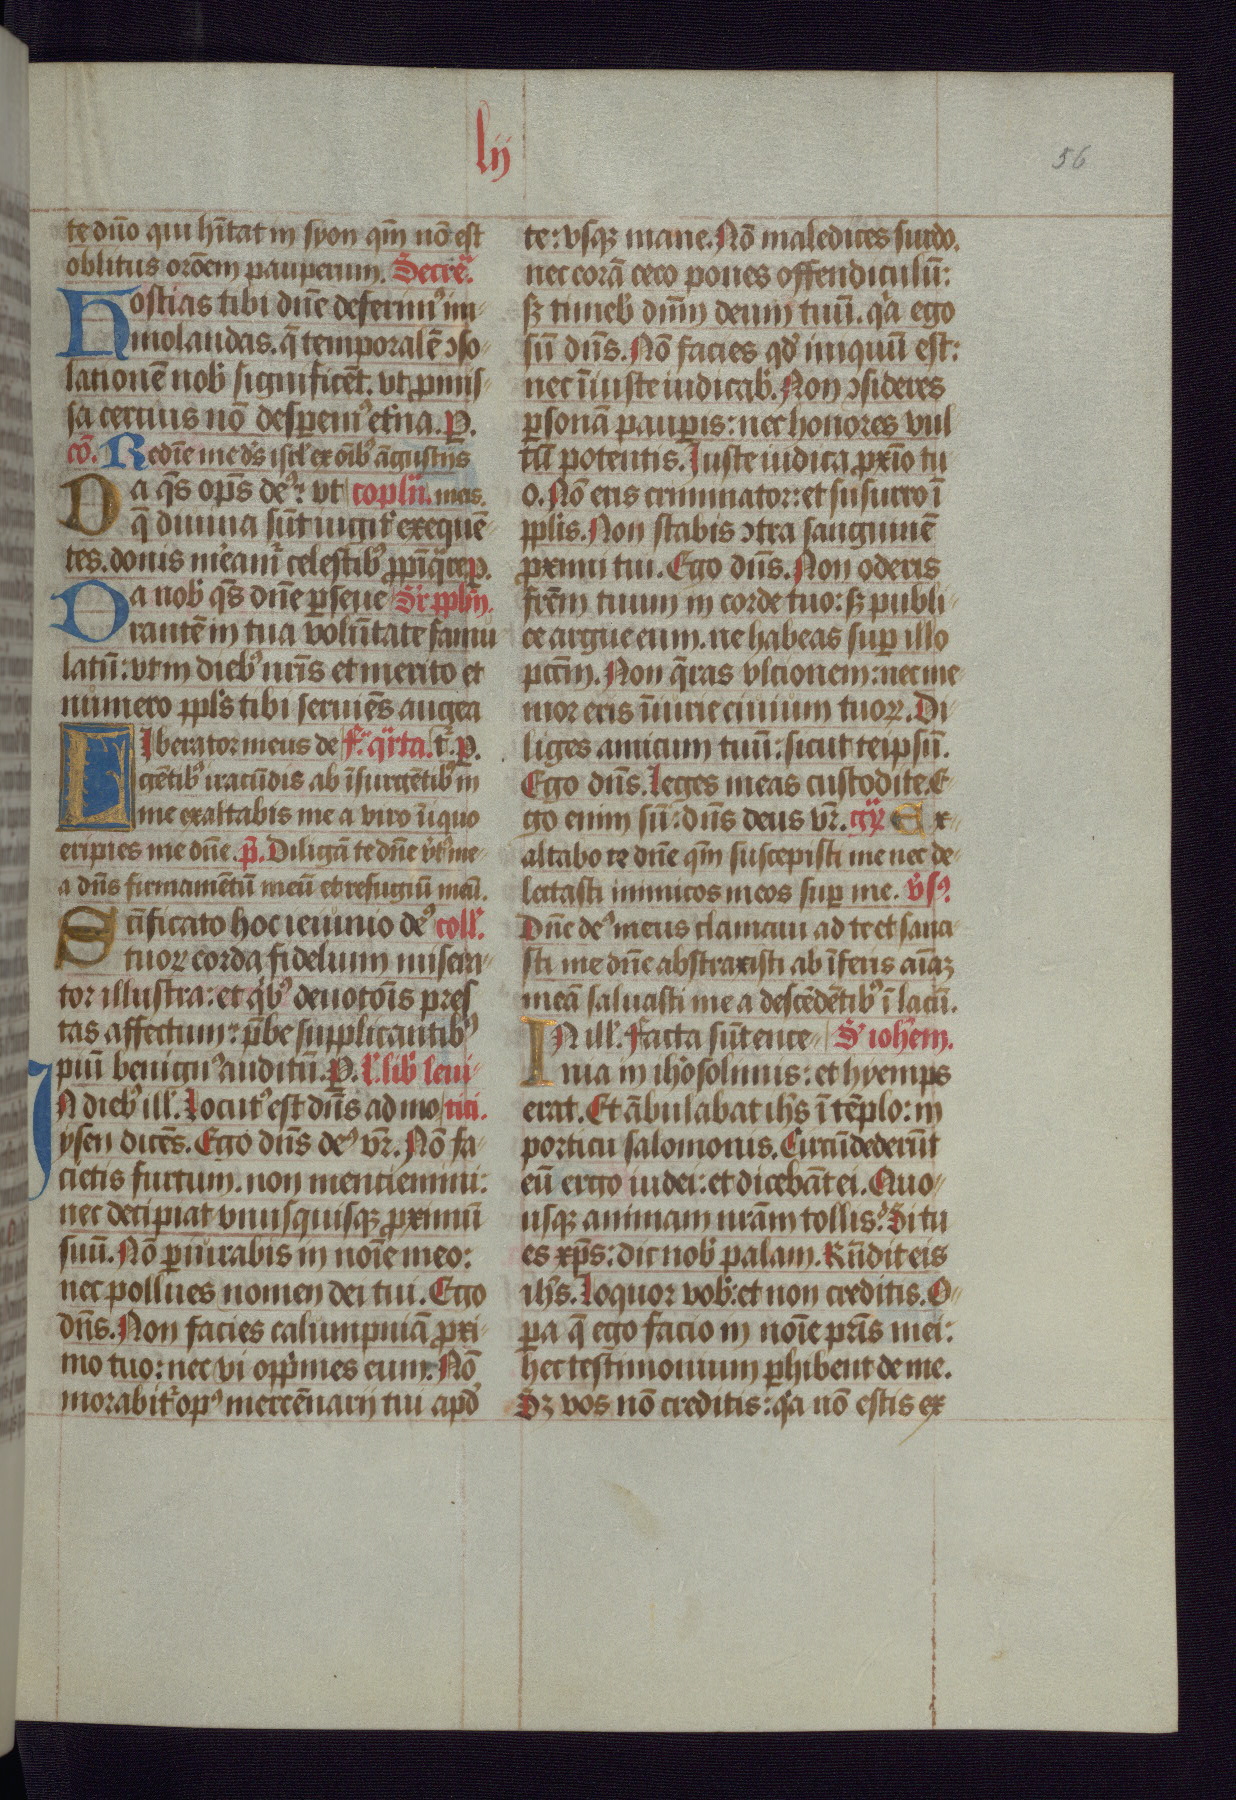 lii
56
te dn̄o qui hītat in syon qm̄ nō est
oblitus orōem pauperum. Secre᷑.
Hostias tibi dn̄e deferimꝰ im-
molandas. q̄ temporalē ɔso-
lationē nob̾ significēt. vt ꝓmis-
sa certius nō desperemꝰ et̾na. P.
cō. Redīe me dꝰs isrl̾ ex oībꝰ āgustijs
Da q̄s oīps deꝰ: vt coplīj. meis.
q̄ diuina sūt iugit̾ exequē-
tes. donis m̾eam̾ celestibꝰ
Da nob̾ q̄s dn̄e ꝑseue Sr̾ pplm̄.
rantē in tua volūtate famu
latū: vt in diebꝰ nr̄is et merito et
numero ppl̾s tibi seruiēs augea
Liberator meus de f̾. qr̾ta. t᷑. P.
gētibꝰ iracūdis ab īsurgētibꝰ in
me exaltabis me a viro īiquo
eripies me dn̄e. p̄. Diligā te dn̄e v̾tꝰ me-
a dn̄s firmamētū meū et refugiū meū.
Sc̄ificato hoc ieiunio deꝰ coll̾.
tuoꝝ corda fidelium misera-
tor illustra: et qͥbꝰ deuotōis pres
tas affectum: p̄be supplicantibꝰ
piū benignꝰ auditū. P. L̾ lib̾ leui-
In diebꝰ ill̾. Locutꝰ est dn̄s ad mo tici.
ysen dicēs. Ego dn̄s deꝰ vr̄. Nō fa-
cietis furtum. non mentiemini:
nec decipiat vnusquisqꝫ ꝓximū
suū. Nō ꝑiurabis in noīe meo:
nec pollues nomen dei tui. Ego
dn̄s. Non facies calumpniā ꝓxi-
mo tuo: nec vi opp̾mes eum. Nō
morabit᷑ opꝰ mercēnarij tui apd̾
te: vsqꝫ mane. Nō maledices surdo.
nec corā ceco pones offendiculū:
sꝫ timeb̾ dn̄m deum tuū. qͥa ego
sū dn̄s. Nō facies qd̾ iniquū est:
nec īiuste iudicab̾. Non ɔsideres
ꝑsonā pauꝑis: nec honores vul
tū potentis. Iuste iudica ꝓxīo tu
o. Nō eris criminator: et susurro ī
ppl̾is. Non stabis ɔtra sanguinē
ꝓximi tui. Ego dn̄s. Non oderis
fr̄em tuum in corde tuo: sꝫ publi-
ce argue eum. ne habeas suꝑ illo
pcc̄m. Non q̄ras vlcionem: nec me
mor eris īiurie ciuium tuoꝝ. Di
liges amicum tuū: sicut teipsū.
Ego dn̄s. Leges meas custodite. E-
go enim sū: dn̄s deus vr̄. gr̾. Ex-
altabo te dn̄e qm̄ suscepisti me nec de-
lectasti inimicos meos suꝑ me. v̾sꝰ.
Dn̄e deꝰ meus clamaui ad te et sana-
sti me dn̄e abstraxisti ab īferis aīaꝫ
meā saluasti me a descēdētibꝰ ī lacū.
In ill̾. Facta sūt ence- S̾ ioh̾em.
nia in ih̾osolimis: et hyemps
erat. Et ābulabat ih̾s ī tēplo: in
porticu salomonis. Circūdederūt
eū ergo iudei: et dicebāt ei. Quo-
usqꝫ animam nr̄am tollis: Si tu
es xp̄s: dic nob̾ palam. Rn̄dit eis
ih̾s. Loquor vob̾: et non creditis. O-
ꝑa q̄ ego facio in noīe pr̄is mei:
hec testimonium ꝑhibent de me.
Sꝫ vos nō creditis: qͥa nō estis ex